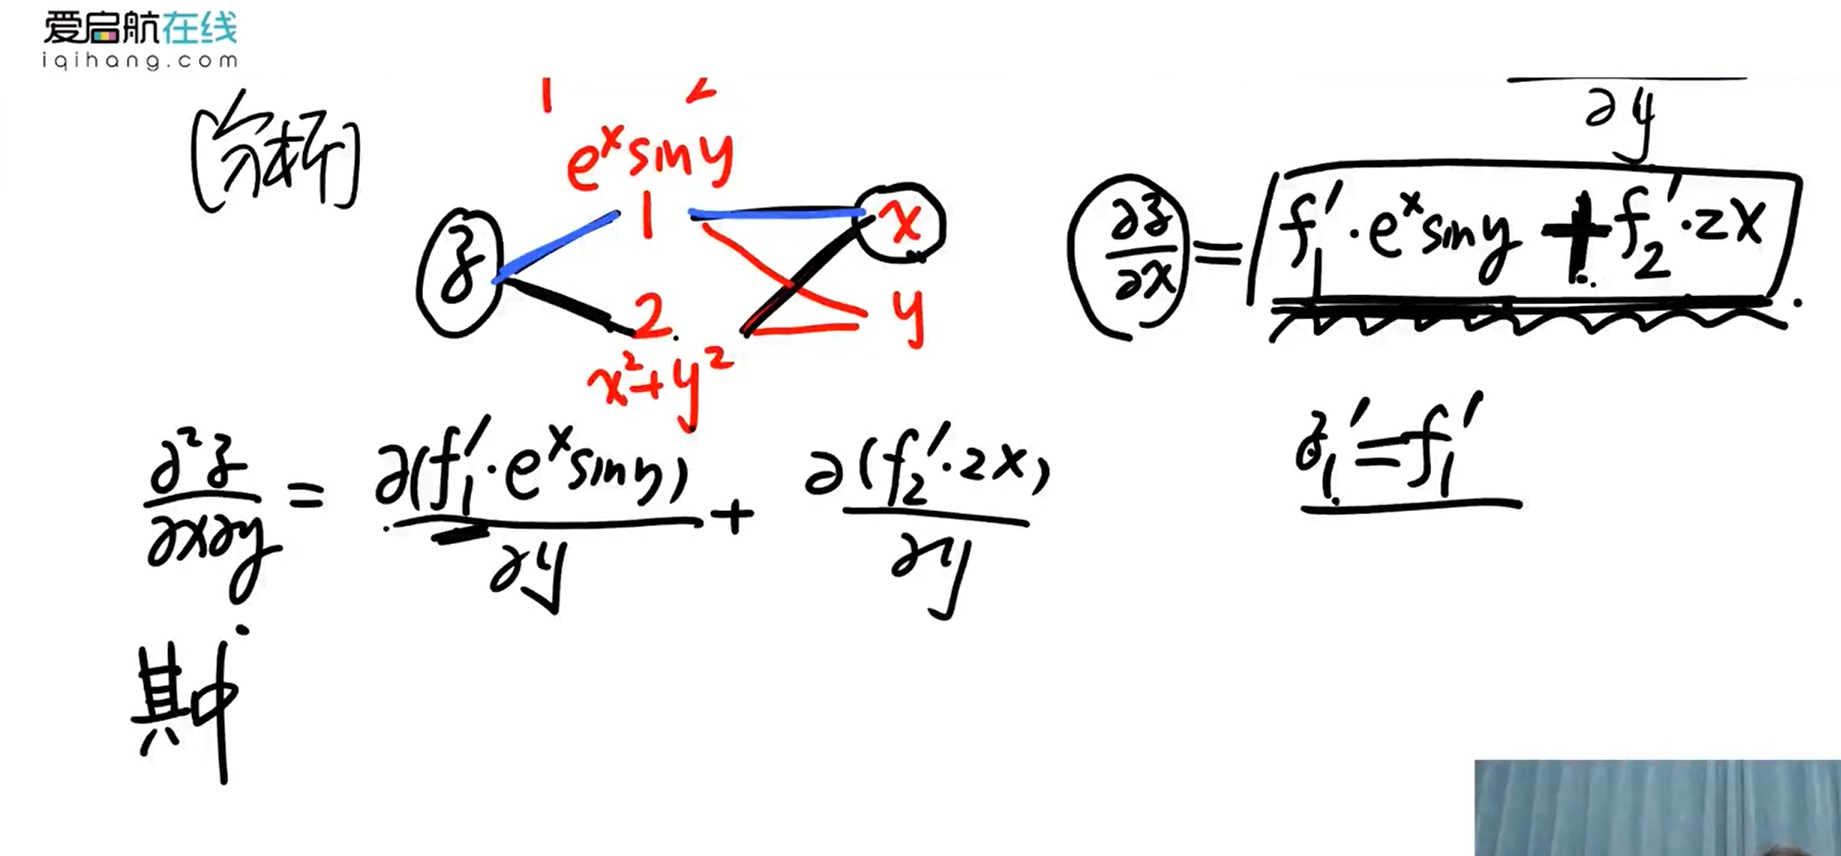 爱启航在线
iqihang.com
1 2
∂y
[分析]
e^x sin y
1
z
x
2
y
x²+y²
∂z/∂x = f₁′·e^x sin y + f₂′·2x.
∂²z/∂x∂y = ∂(f₁′·e^x sin y)/∂y + ∂(f₂′·2x)/∂y
z₁′=f₁′
其中